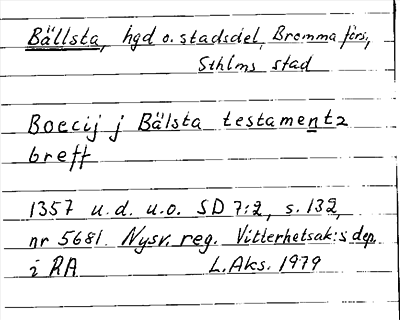 Bällsta, hgd o. stadsdel, Bromma förs,
Sthlms stad
Boecij j Bälsta testamentz
breff
1357 u.d. u.o. SD 7:2, s. 132,
nr 5681. Nysv. reg. Vitterhetsak:s dep.
i RA L. Aks. 1979